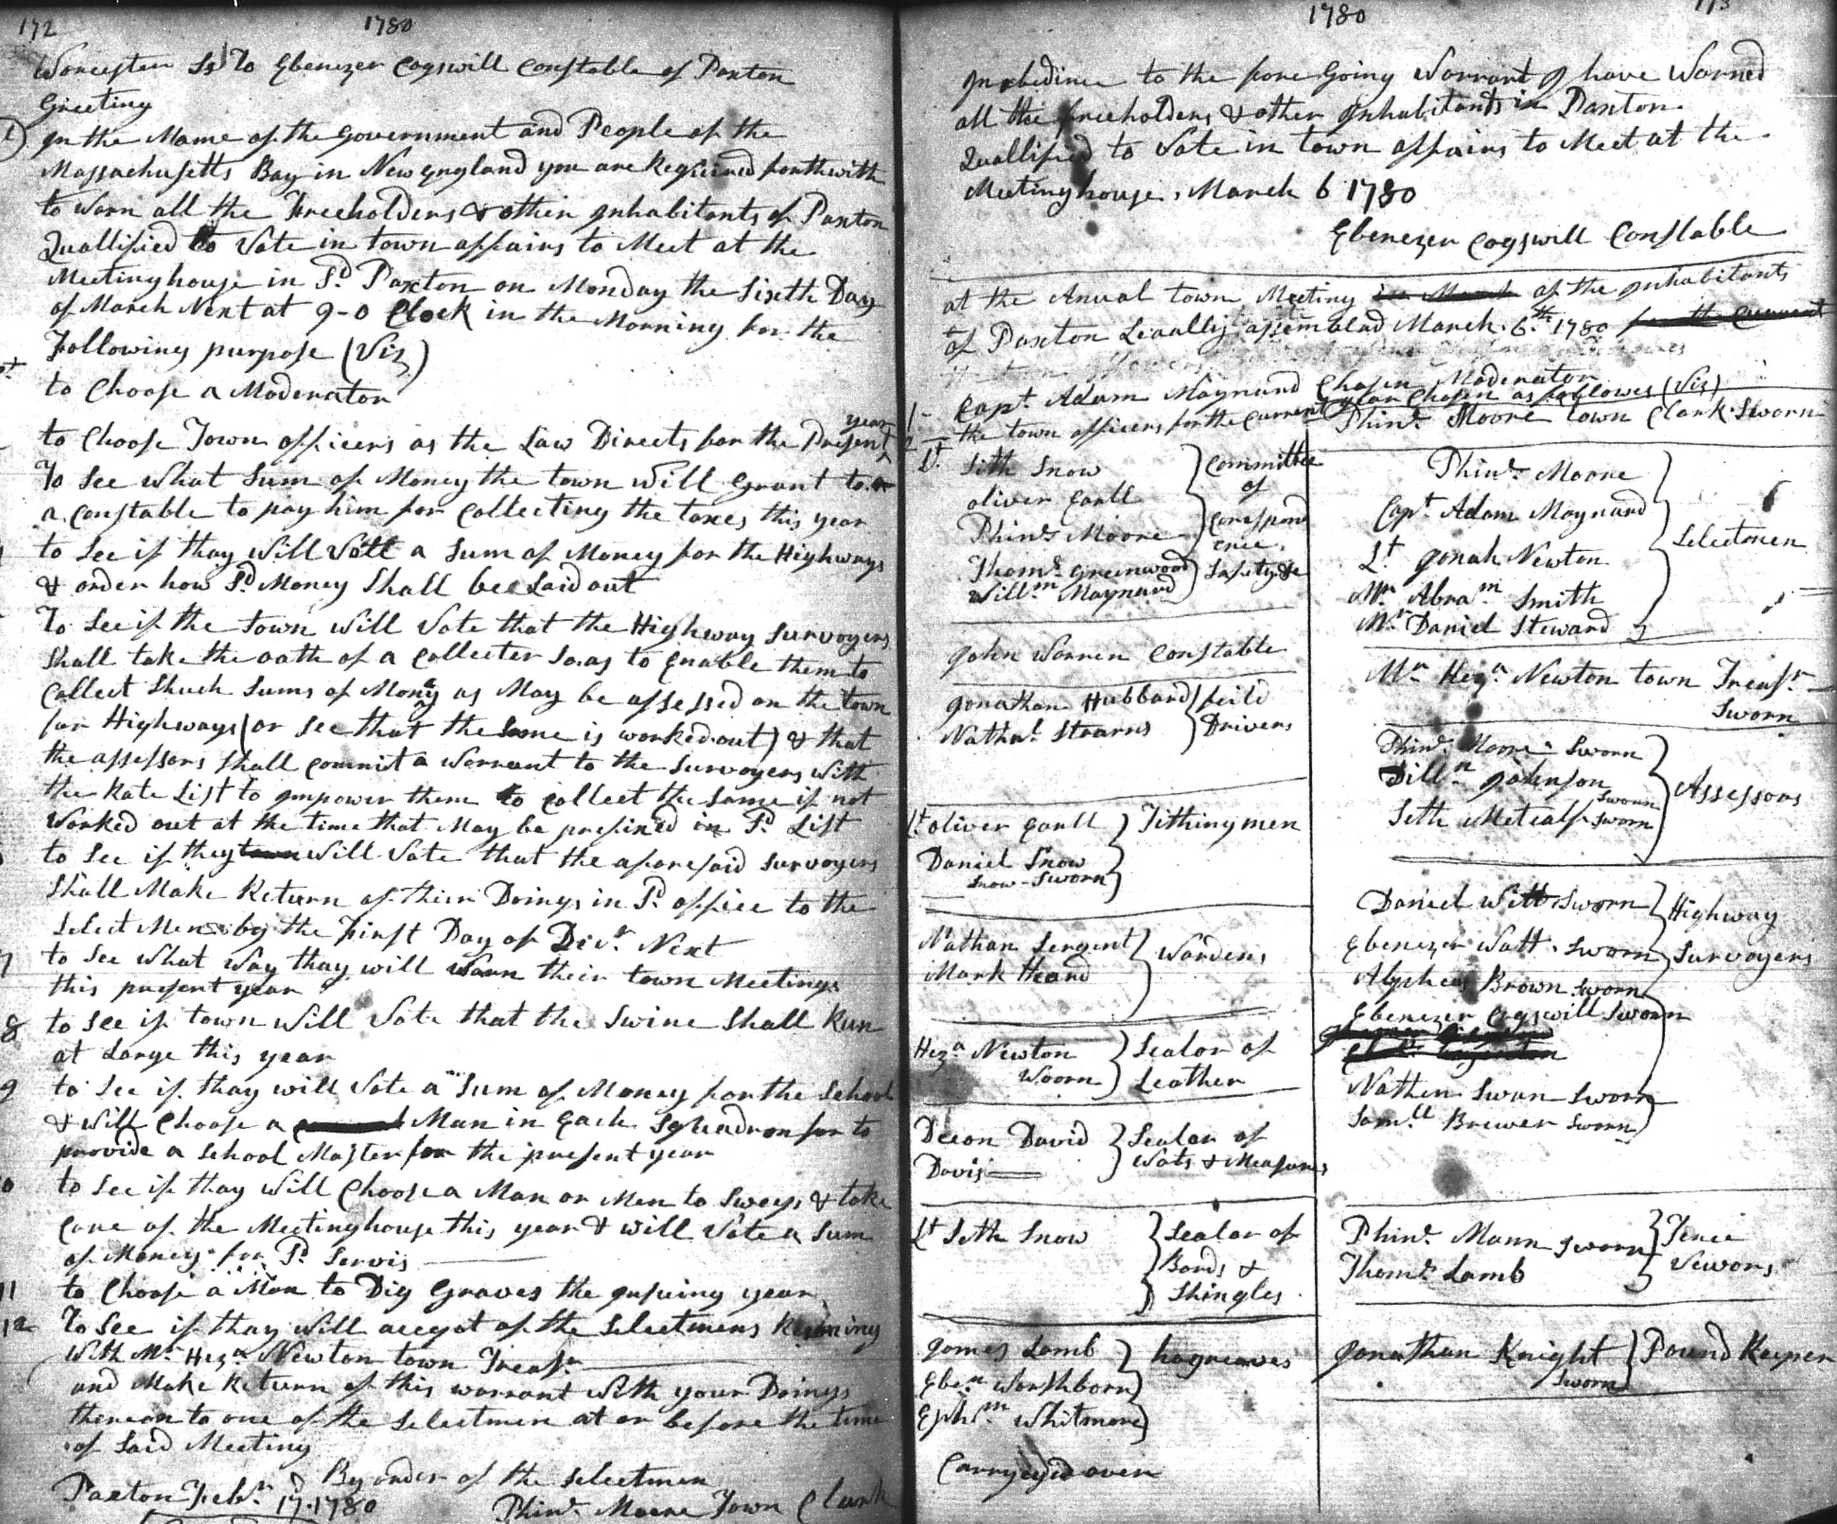 172 1780
Worcester Ss To Ebenezer Cogswill Constable of Paxton
Greeting
In the Name of the Government and People of the
Massachusetts Bay in New England you are Requiered forthwith
to Warn all the Freeholders & other Inhabitants of Paxton
Quallified to Vote in town affairs to Meet at the
Meetinghouse in Sd. Paxton on Monday the Sixth Day
of March Next at 9-0 Clock in the Morning for the
Following purpose (Viz)
to Choose a Moderator
year
to Choose Town officers as the Law Directs for the Present
To See What Sum of Money the town Will Grant to
a Constable to pay him for Collecting the taxes this year
to See if thay Will Vote a Sum of Money for the Highways
& order how Sd. Money Shall be Laid out
To See if the town Will Vote that the Highway Survoyers
Shall take the oath of a Collecter So as to Enable them to
Collect Shuch Sums of Mony as May be assessed on the town
for Highways (or See that the Same is worked out) & that
the assessors Shall Commit a Warrant to the Survoyers With
the Rate List to Impower them to Collect the Same if not
Worked out at the time that May be prefixed in Sd. List
to See if they town Will Vote that the aforesaid Survoyers
Shall Make Return of their Doings in Sd. office to the
Select Men by the First Day of Decr. Next
7 to See What Way thay will Warn their town Meetings
this present year
8 to See if town Will Vote that the Swine Shall Run
at Large this year
9 to See if thay will Vote a Sum of Money for the School
& Will Choose a Man in Each Squadron for to
provide a School Master for the present year
to See if thay Will Choose a Man or Men to Sweep & take
Care of the Meetinghouse this year & will Vote a Sum
of Money for Sd Servis
11 to Choose a Man to Dig Graves the Insuing year
12 To See if thay Will accept of the Selectmens Reckning
With Mr. Heza Newton town Treasr.
and Make Return of this warrant With your Doings
thereon to one of the Selectmen at or before the time
of Said Meeting
By order of the Selectmen
Paxton Febr. 17. 1780 Phins. Moore Town Clark
1780 173
In obedince to the fore Going Warrant I have Warned
all the freeholders & other Inhabitants in Paxton
Quallified to Vote in town affairs to Meet at the
Meetinghouse, March 6 1780
Ebenezer Cogswill Constable
at the Anual town Meeting of the Inhabitants
of Paxton Leaally assemblad March. 6th. 1780
1- Capt. Adam Maynard Chosen Moderator
2- the town officers for the Current year Chosen as follows (Viz)
Phins. Moore town Clark Sworn
Lt. Seth Snow
oliver Earll
Phins Moore
Thoms. Greenwood
Willm. Maynard
Committee
of
Correspond
ence,
Safety &c
John Warren Constable
Jonathan Hubbard
Nathal. Stearns
feild
Drivers
Lt. oliver Earll
Daniel Snow
Snow-Sworn
Tithingmen
Nathan Sergent
Mark Heard
Wardens
Heza Newton
Sworn
Sealor of
Leather
Decon David
Davis
Sealor of
Wats & Measures
Lt Seth Snow
Sealor of
Bords &
Shingles
James Lamb
Eber. Worshborn
Ephm. Whitmore
hogreaves
Carryeyed over
Phins. Moore
Capt. Adam Maynard
Lt Jonah Newton
Mr. Abram Smith
Mr. Daniel Steward
Selectmen
Mr. Heza. Newton town Treasr.
Sworn
Phins. Moore Sworn
Willm Johnson
Sworn
Seth Metcalf Sworn
Assessors
Daniel Witt Sworn
Ebenezer Watt. Sworn
Alpheus Brown Sworn
Ebenezer Cogswill Sworn
Nathen Swan Sworn
Samll Brewer Sworn
Highway
Survoyers
Phins. Mann Sworn
Thoms. Lamb
Fence
Vewors
Jonathan Knight
Sworn
Pound Keeper